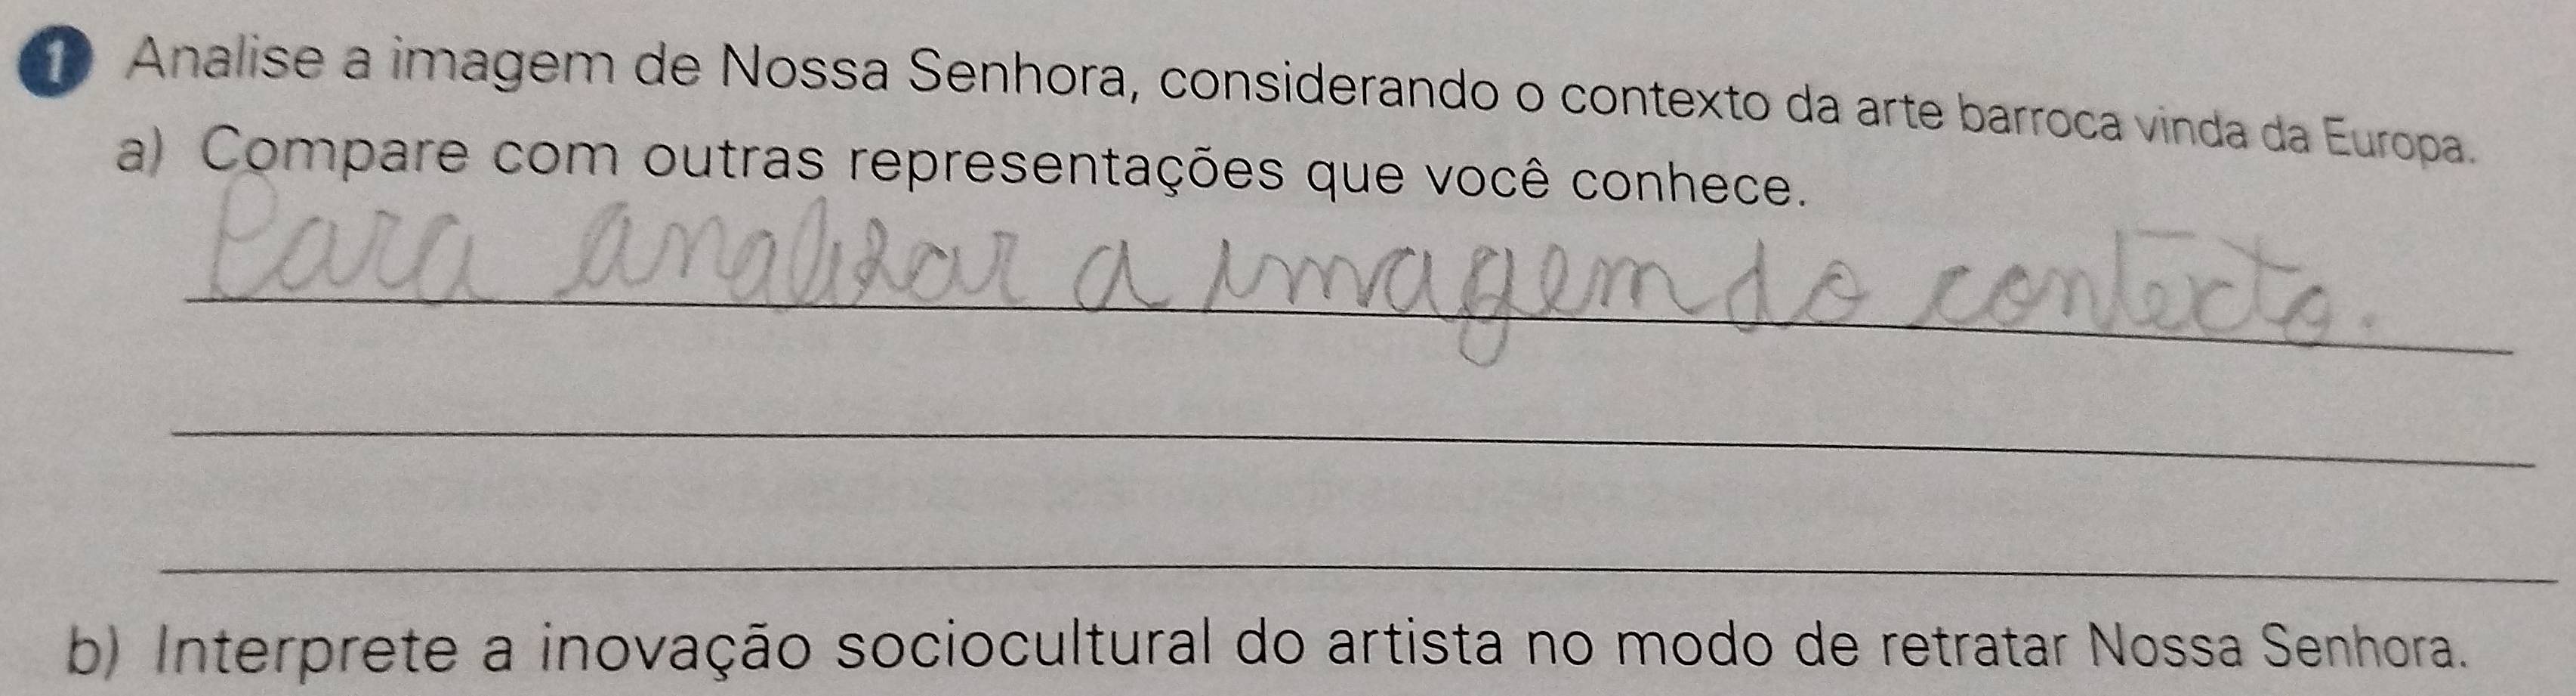 1 Analise a imagem de Nossa Senhora, considerando o contexto da arte barroca vinda da Europa.
a) Compare com outras representações que você conhece.
Para analizar a imagem do contexto.
b) Interprete a inovação sociocultural do artista no modo de retratar Nossa Senhora.